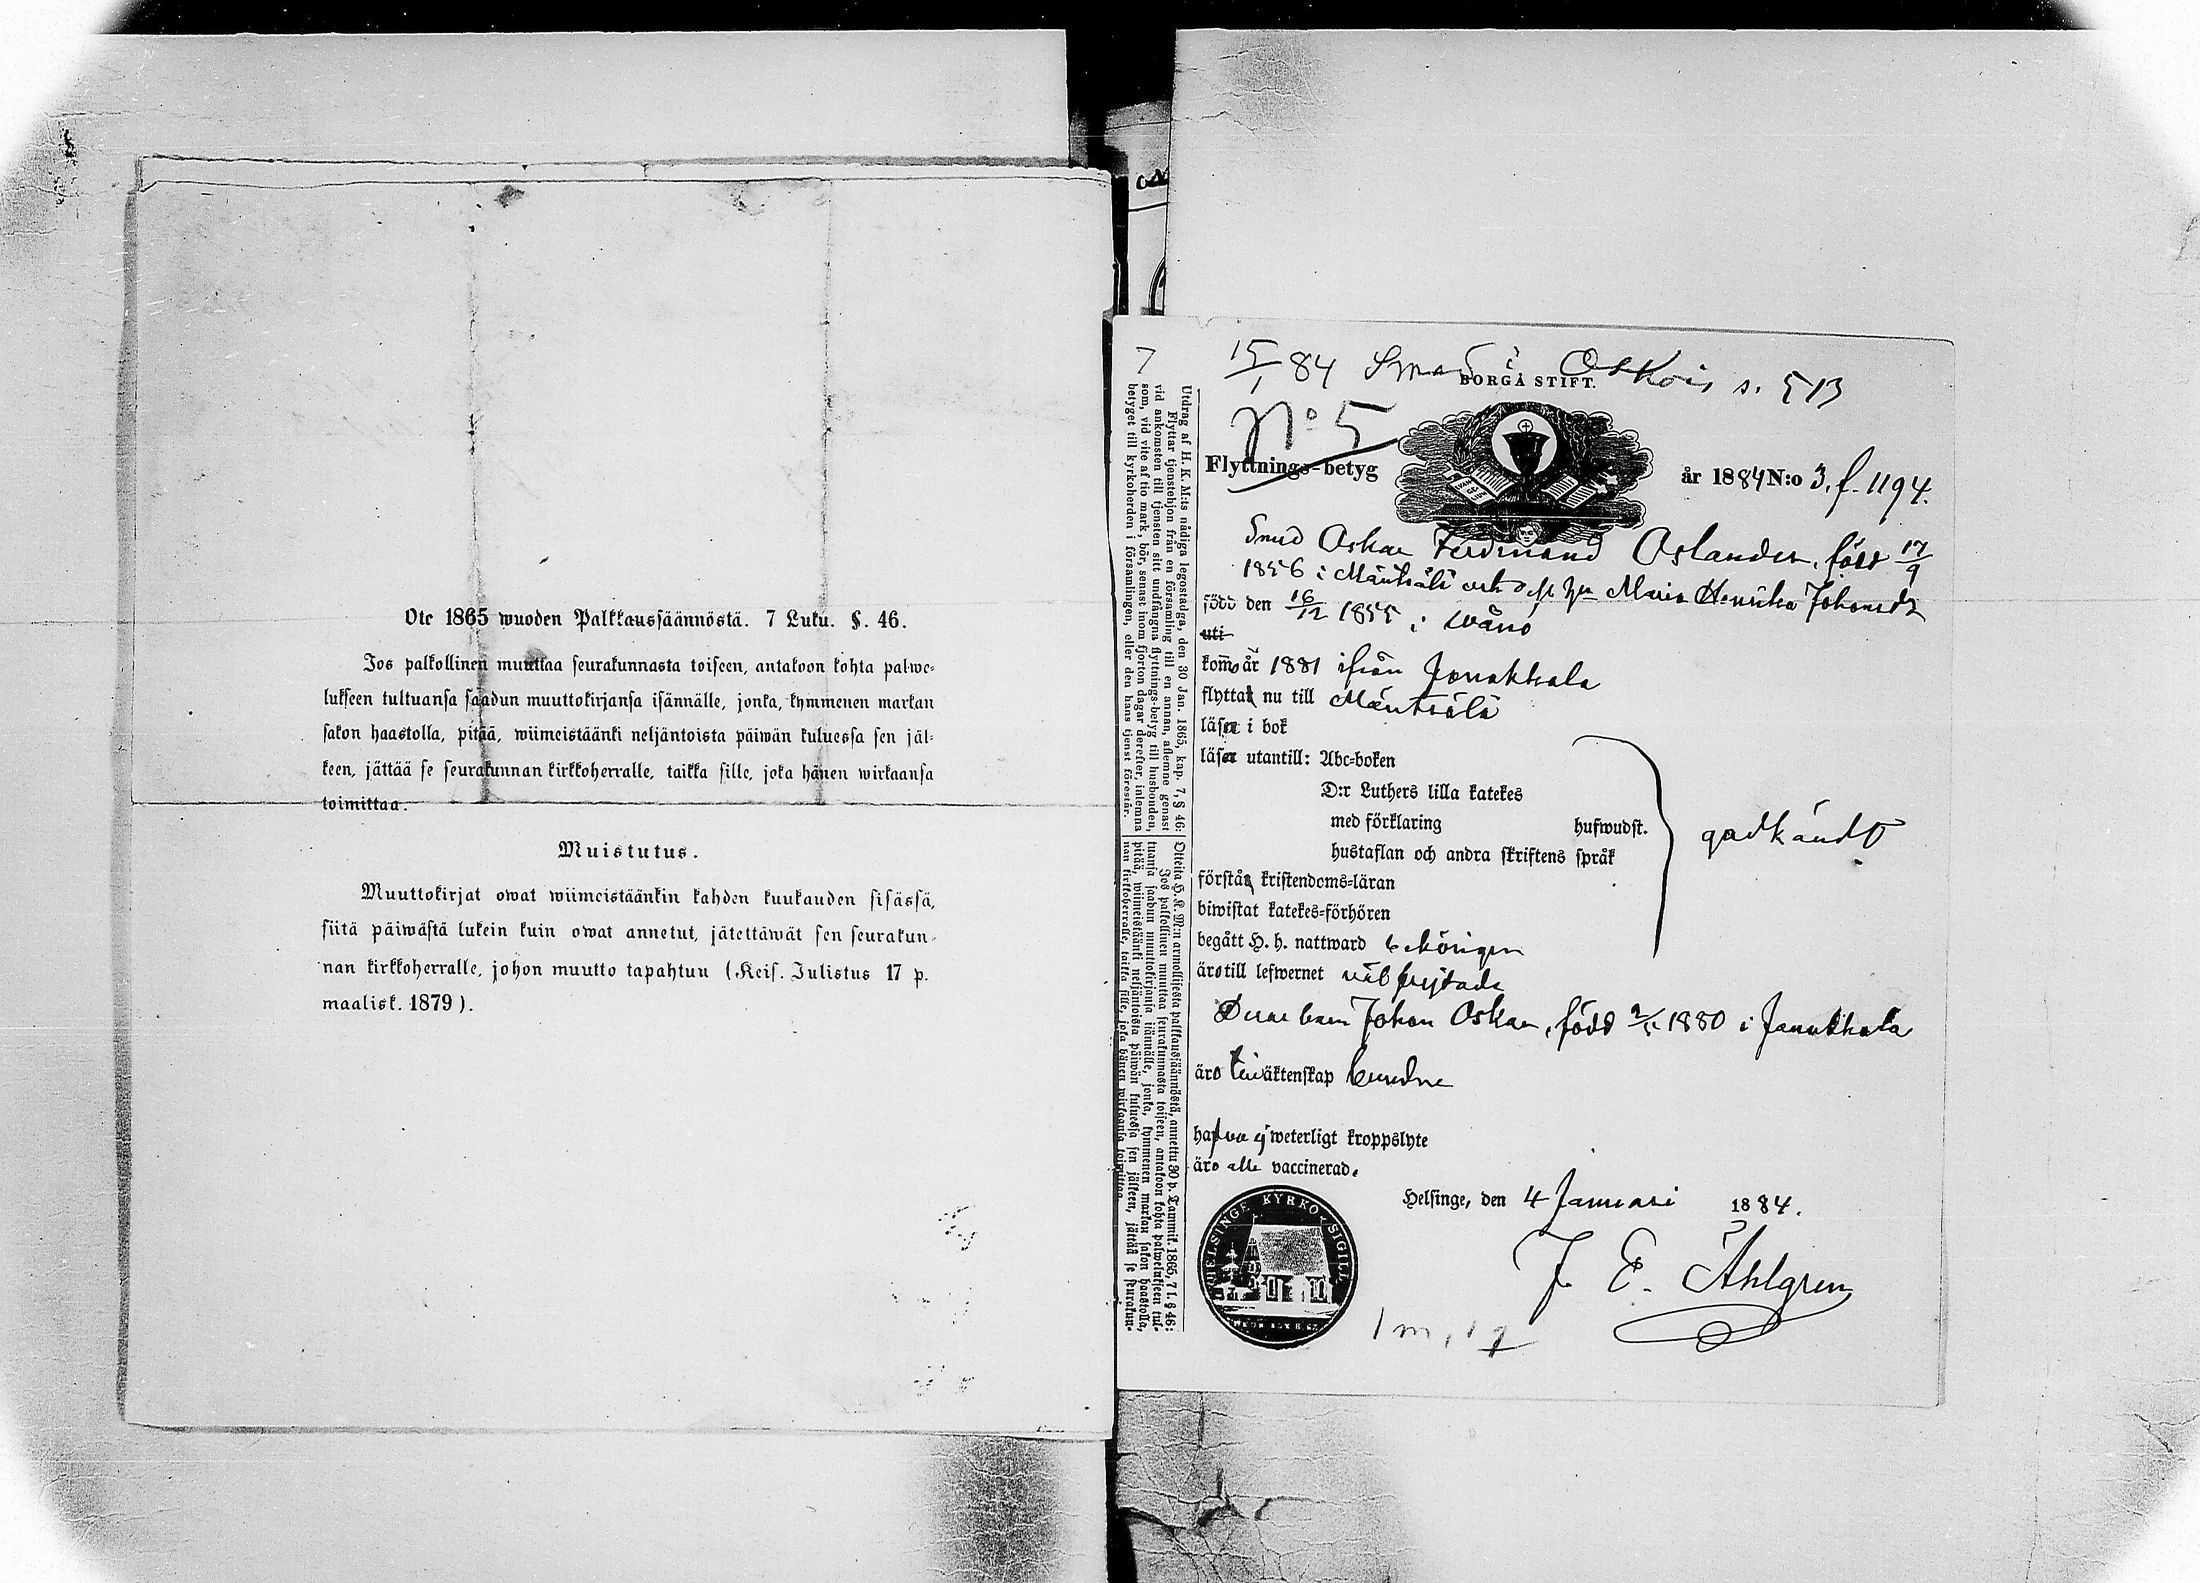 Ote 1865 wuoden Palkkaussäännöstä. 7 Luku. §. 46.
Jos palkollinen muuttaa seurakunnasta toiseen, antakoon kohta palwe-
lukseen tultuansa saadun muuttokirjansa isännälle, jonka, kymmenen markan
sakon haastolla, pitää, wiimeistäänki neljäntoista päiwän kuluessa sen jäl-
keen, jättää se seurakunnan kirkkoherralle, taikka sille, joka hänen wirkaansa
toimittaa.
Muistutus.
Muuttokirjat owat wiimeistäänkin kahden kuukauden sisässä,
siitä päiwästä lukein kuin owat annetut, jätettäwät sen seurakun-
nan kirkkoherralle, johon muutto tapahtuu (Keis. Julistus 17 p.
maalisk. 1879).
7
Utdrag af H. K. M:ts nådiga legostadga, den 30 Jan. 1865, kap. 7, § 46:
Flyttar tjenstehjon från en församling till en annan, aflemne genast
vid ankomsten till tjensten sitt undfångna flyttnings-betyg till husbonden,
som, vid vite af tio mark, bör, senast inom fjorton dagar derefter, inlemna
betyget till kyrkoherden i församlingen, eller den hans tjenst förestår.
Otteita H. K. M:n armollisesta palkkaussäännöstä, annettu 30 p. Tammik. 1865, 7 l. § 46:
Jos palkollinen muuttaa seurakunnasta toiseen, antakoon kohta palwelukseen tul-
tuansa saadun muuttokirjansa isännälle, jonka, kymmenen markan sakon haastolla,
pitää, wiimeistäänki neljäntoista päiwän kuluessa sen jälkeen, jättää se seurakun-
nan kirkkoherralle, taikka sille, joka hänen wirkaansa toimittaa.
15/1 84 Smed i Oskois s. 513
BORGÅ STIFT.
No 5
Flyttnings-betyg
år 1884 N:o 3. f. 1194.
Smed Oskar Ferdinand Oslander, född 17/9
1856 i Mäntsälä och dess hu Maria Henrika Johansd:r
född den 16/12 1855 i Wånå
uti
kommo år 1881 ifrån Janakkala
flytta nu till Mäntsälä
läsa i bok
läsa utantill: Abc-boken
D:r Luthers lilla katekes
med förklaring hufwudst.
hustaflan och andra skriftens språk
godkändt
förstå kristendoms-läran
biwistat katekes-förhören
begått H. h. nattward behörigen
äro till lefwernet väl frejdade
Deras barn Johan Oskar, född 1880 i Janakkala
äro till äktenskap bundne
hafva ej weterligt kroppslyte
äro alle vaccinerade
Helsinge, den 4 Januari 1884.
J. E. Åhlgren
HELSINGE KYRKO SIGILL
1 m,